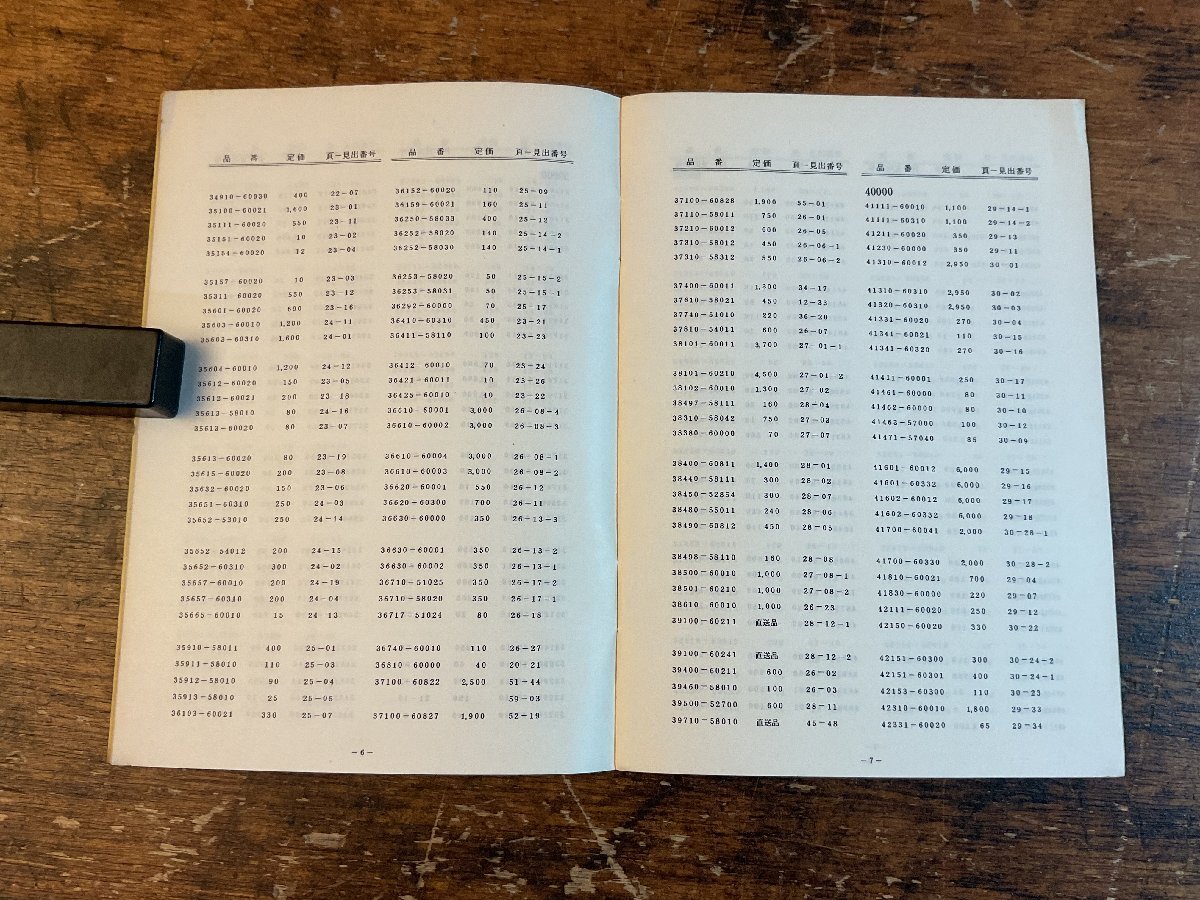 品 番 定価 頁-見出番号
34910-60030 400 22-07
35100-60021 1,400 23-01
35111-60020 550 23-11
35151-60020 10 23-02
35154-60020 12 23-04
35157-60020 10 23-03
35311-60020 550 23-12
35601-60020 600 23-16
35603-60010 1,200 24-11
35603-60310 1,600 24-01
35604-60010 1,200 24-12
35612-60020 150 23-05
35612-60021 200 23-18
35613-58010 80 24-16
35613-60020 80 23-07
35613-60020 80 23-19
35615-60020 200 23-08
35632-60020 150 23-06
35651-60310 250 24-03
35652-53010 250 24-14
35652-54012 200 24-15
35652-60310 300 24-02
35657-60010 200 24-19
35657-60310 200 24-04
35665-60010 15 24-13
35910-58011 400 25-01
35911-58010 110 25-03
35912-58010 90 25-04
35913-58010 25 25-05
36103-60021 330 25-07
品 番 定価 頁-見出番号
36152-60020 110 25-09
36159-60021 160 25-11
36250-58033 400 25-12
36252-58020 140 25-14-2
36252-58030 140 25-14-1
36253-58020 50 25-15-2
36253-58031 50 25-15-1
36292-60000 70 25-17
36410-60310 450 23-21
36411-58110 100 23-23
36412-60010 70 25-24
36421-60011 10 23-26
36425-60010 40 23-22
36610-60001 3,000 26-08-4
36610-60002 3,000 26-08-3
36610-60004 3,000 26-08-1
36610-60003 3,000 26-08-2
36620-60001 550 26-12
36620-60300 700 26-11
36630-60000 350 26-13-3
36630-60001 350 26-13-2
36630-60002 350 26-13-1
36710-51025 350 26-17-2
36710-58020 350 26-17-1
36717-51024 80 26-18
36740-60010 110 26-27
36810-60000 40 20-21
37100-60822 2,500 51-44
59-03
37100-60827 1,900 52-19
-6-
品 番 定価 頁-見出番号
37100-60828 1,900 55-01
37110-58011 750 26-01
37210-60012 900 26-05
37310-58012 450 26-06-1
37310-58312 550 26-06-2
37400-60011 1,300 34-17
37610-58021 450 12-33
37740-51010 220 36-20
37810-54011 600 26-07
38101-60011 3,700 27-01-1
38101-60210 4,500 27-01-2
38102-60010 1,300 27-02
38497-58111 160 28-04
38310-58042 750 27-03
38380-60000 70 27-07
38400-60811 1,400 28-01
38440-58111 300 28-02
38450-52854 300 28-07
38480-55011 240 28-06
38490-60812 450 28-05
38498-58110 160 28-08
38500-60010 1,000 27-08-1
38501-60210 1,000 27-08-2
38610-60010 1,000 26-23
39100-60211 直送品 28-12-1
39100-60241 直送品 28-12-2
39400-60211 600 26-02
39460-58010 100 26-03
39500-52700 600 28-11
39710-58010 直送品 45-48
品 番 定価 頁-見出番号
40000
41111-60010 1,100 29-14-1
41111-60310 1,100 29-14-2
41211-60020 350 29-13
41230-60000 350 29-11
41310-60012 2,950 30-01
41310-60310 2,950 30-02
41320-60310 2,950 30-03
41331-60020 270 30-04
41341-60021 110 30-15
41341-60320 270 30-16
41411-60001 250 30-17
41461-60000 80 30-11
41462-60000 80 30-10
41463-57000 100 30-12
41471-57040 85 30-09
41601-60012 6,000 29-15
41601-60332 6,000 29-16
41602-60012 6,000 29-17
41602-60332 6,000 29-18
41700-60041 2,000 30-28-1
41700-60330 2,000 30-28-2
41810-60021 700 29-04
41830-60000 220 29-07
42111-60020 250 29-12
42150-60020 330 30-22
42151-60300 300 30-24-2
42151-60301 400 30-24-1
42153-60300 110 30-23
42310-60010 1,800 29-33
42331-60020 65 29-34
-7-